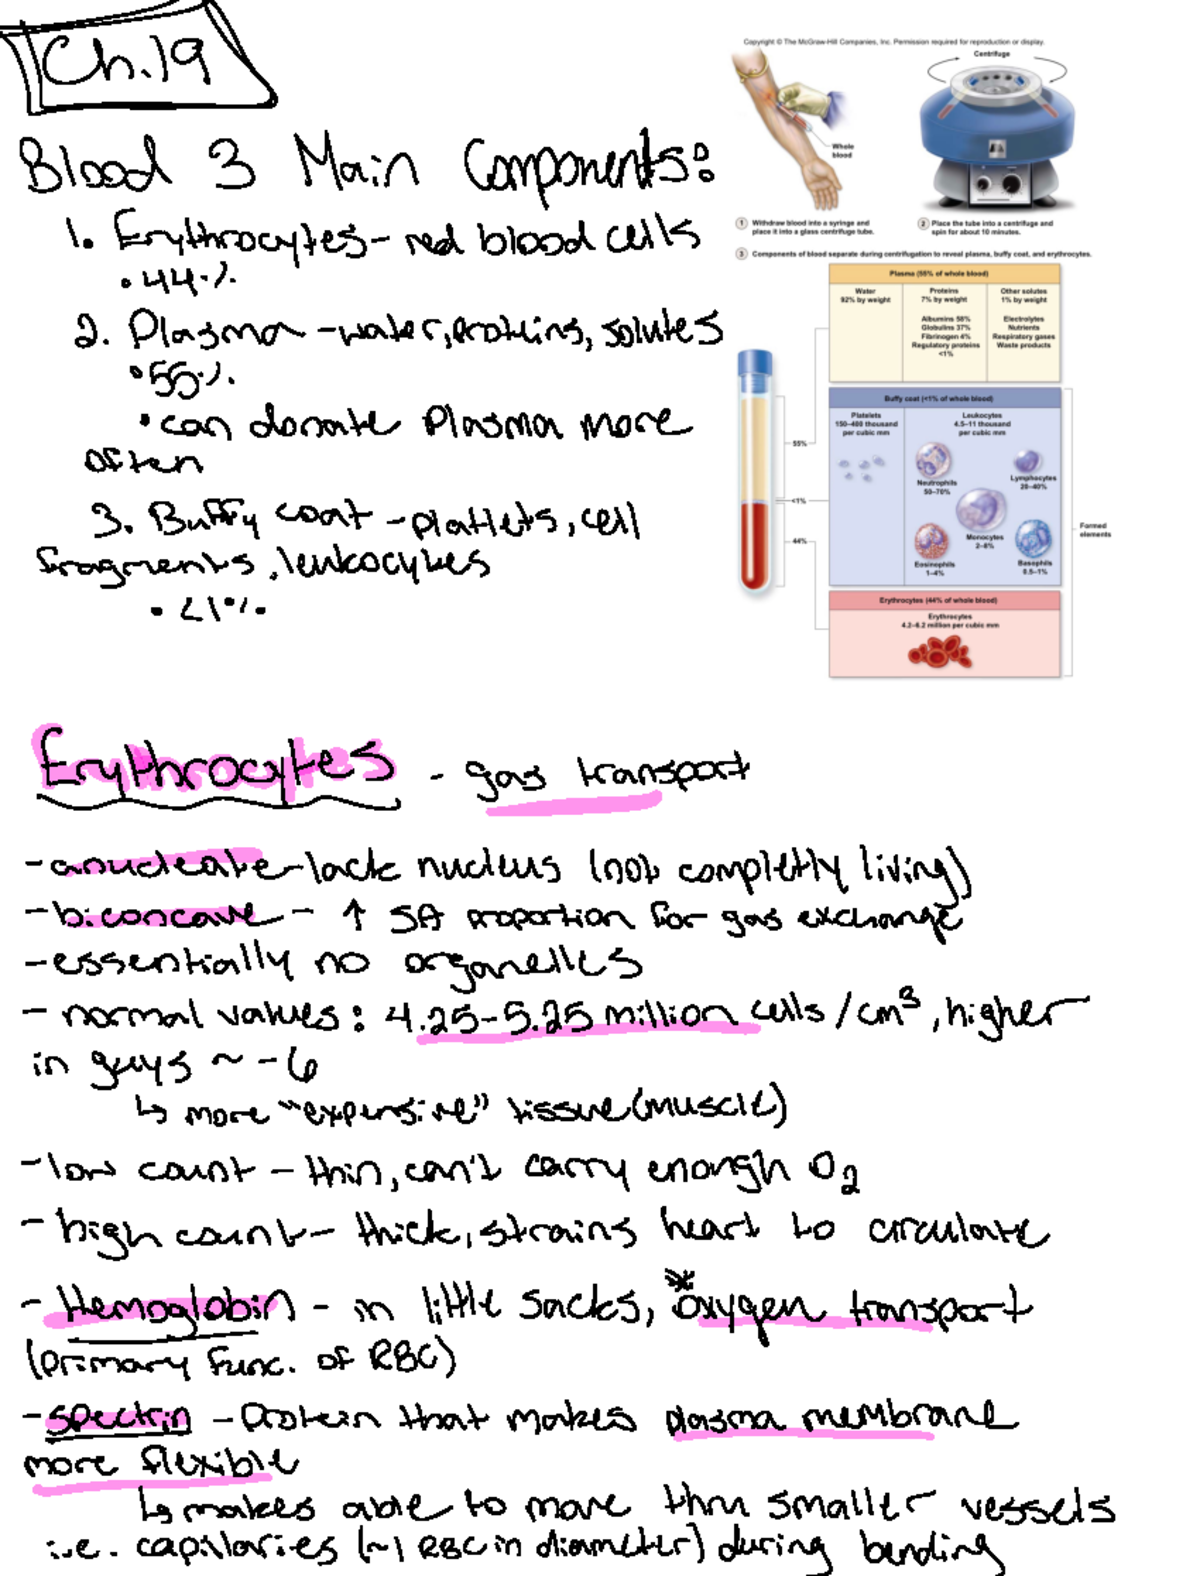 Ch.19
Blood 3 Main Components:
1. Erythrocytes- red blood cells
• 44%
2. Plasma -water, proteins, solutes
• 55%
• can donate Plasma more
often
3. Buffy coat -platlets, cell
fragments, leukocytes
• <1%
Copyright © The McGraw-Hill Companies, Inc. Permission required for reproduction or display.
Centrifuge
Whole
blood
1 Withdraw blood into a syringe and
place it into a glass centrifuge tube.
2 Place the tube into a centrifuge and
spin for about 10 minutes.
3 Components of blood separate during centrifugation to reveal plasma, buffy coat, and erythrocytes.
Plasma (55% of whole blood)
Water
92% by weight
Proteins
7% by weight
Albumins 58%
Globulins 37%
Fibrinogen 4%
Regulatory proteins
<1%
Other solutes
1% by weight
Electrolytes
Nutrients
Respiratory gases
Waste products
Buffy coat (<1% of whole blood)
Platelets
150–400 thousand
per cubic mm
Leukocytes
4.5–11 thousand
per cubic mm
Neutrophils
50–70%
Lymphocytes
20–40%
Monocytes
2–8%
Eosinophils
1–4%
Basophils
0.5–1%
55%
<1%
44%
Formed
elements
Erythrocytes (44% of whole blood)
Erythrocytes
4.2–6.2 million per cubic mm
Erythrocytes - gas transport
- anucleate-lack nucleus (not completly living)
- biconcave - ↑ SA proportion for gas exchange
- essentially no organelles
- normal values: 4.25-5.25 million cells/cm³, higher
in guys ~ -6
↳ more "expensive" tissue (muscle)
- low count - thin, can't carry enough O₂
- high count- thick, strains heart to circulate
- Hemoglobin - in little sacks, *oxygen transport
(primary func. of RBC)
- spectrin - protein that makes plasma membrane
more flexible
↳ makes able to move thru smaller vessels
i.e. capillaries (~1 RBC in diameter) during bending